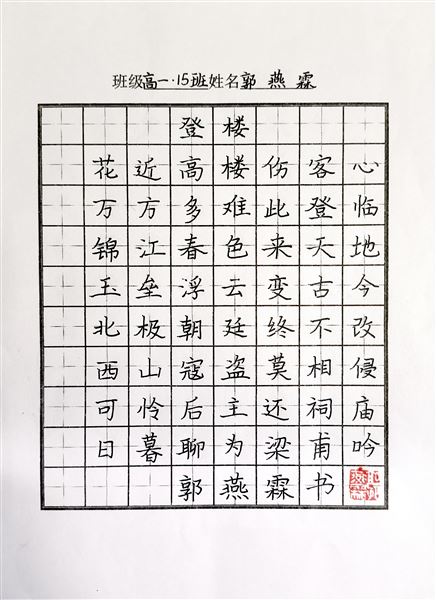 班级高一·15班姓名郭燕霖
登楼
花近高楼伤客心
万方多难此登临
锦江春色来天地
玉垒浮云变古今
北极朝廷终不改
西山寇盗莫相侵
可怜后主还祠庙
日暮聊为梁甫吟
郭燕霖书